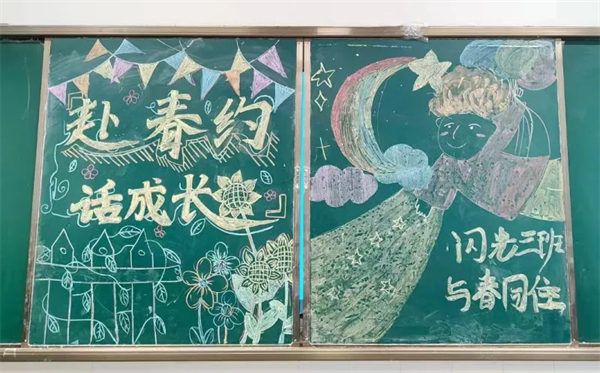 赴春约
话成长
闪光三班
与春同住